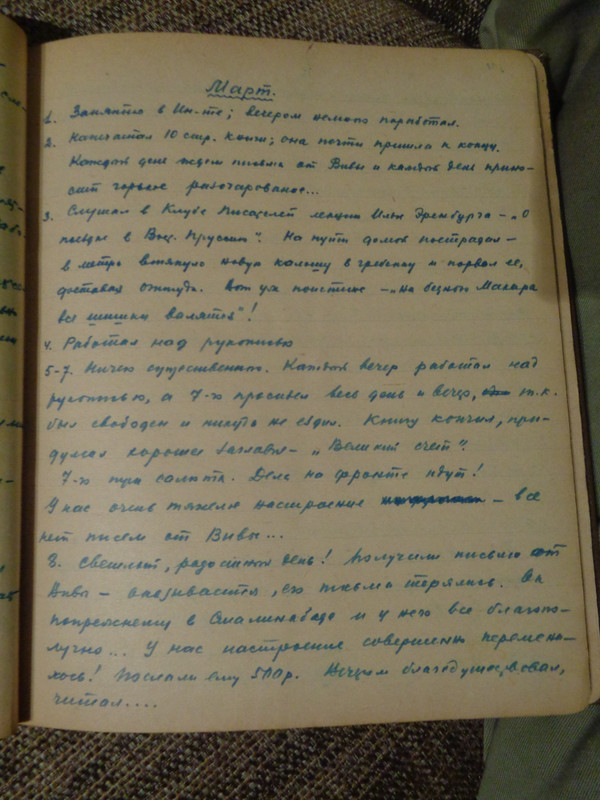 Март.
1. Занятия в Ин-те; вечером немного поработал.
2. Напечатал 10 стр. книги; она почти пришла к концу.
Каждый день ждем письма от Вивы и каждый день прино-
сит горькое разочарование...
3. Слушал в Клубе Писателей лекцию Ильи Эренбурга – „О
поездке в Вост. Пруссию". На пути домой пострадал –
в метро втянуло новую калошу в гребенку и порвал ее,
доставая оттуда. Вот уж поистине – „На бедного Макара
все шишки валятся"!
4. Работал над рукописью
5-7. Ничего существенного. Каждый вечер работал над
рукописью, а 7-го просидел весь день и вечер, т.к.
был свободен и никуда не ездил. Книгу кончил, при-
думал хорошее заглавие – „Великий счет".
7-го три салюта. Дела на фронте идут!
У нас очень тяжелое настроение – все
нет писем от Вивы...
8. Светлый, радостный день! Получили письмо от
Вивы – оказывается, его письма терялись. Он
попрежнему в Сталинабаде и у него все благопо-
лучно... У нас настроение совершенно перемени-
лось! Послали ему 500 р. Вечером благодушествовал,
читал....